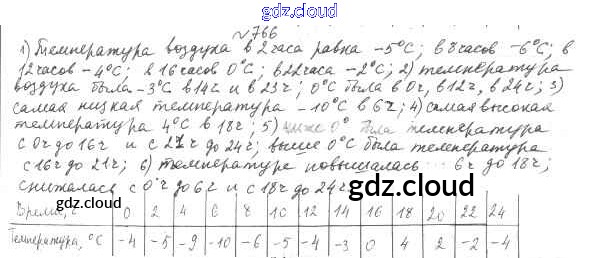 gdz.cloud
№766
1) Температура воздуха в 2 часа равна -5°C; в 8 часов -6°C; в
12 часов -4°C; в 16 часов 0°C; в 22 часа -2°C; 2) температура
воздуха была -3°C в 14ч и в 23ч; 0°C была в 0ч, в 12ч, в 24ч; 3)
самая низкая температура -10°C в 6ч; 4) самая высокая
температура 4°C в 18ч; 5) ниже 0° была температура
с 0ч до 16ч и с 21ч до 24ч; выше 0°C была температура
с 16ч до 21ч; 6) температура повышалась 6ч до 18ч;
снижалась с 0ч до 6ч и с 18ч до 24ч.
gdz.cloud
Время, ч 0 2 4 6 8 10 12 14 16 18 20 22 24
Температура, °C -4 -5 -9 -10 -6 -5 -4 -3 0 4 2 -2 -4
gdz.cloud